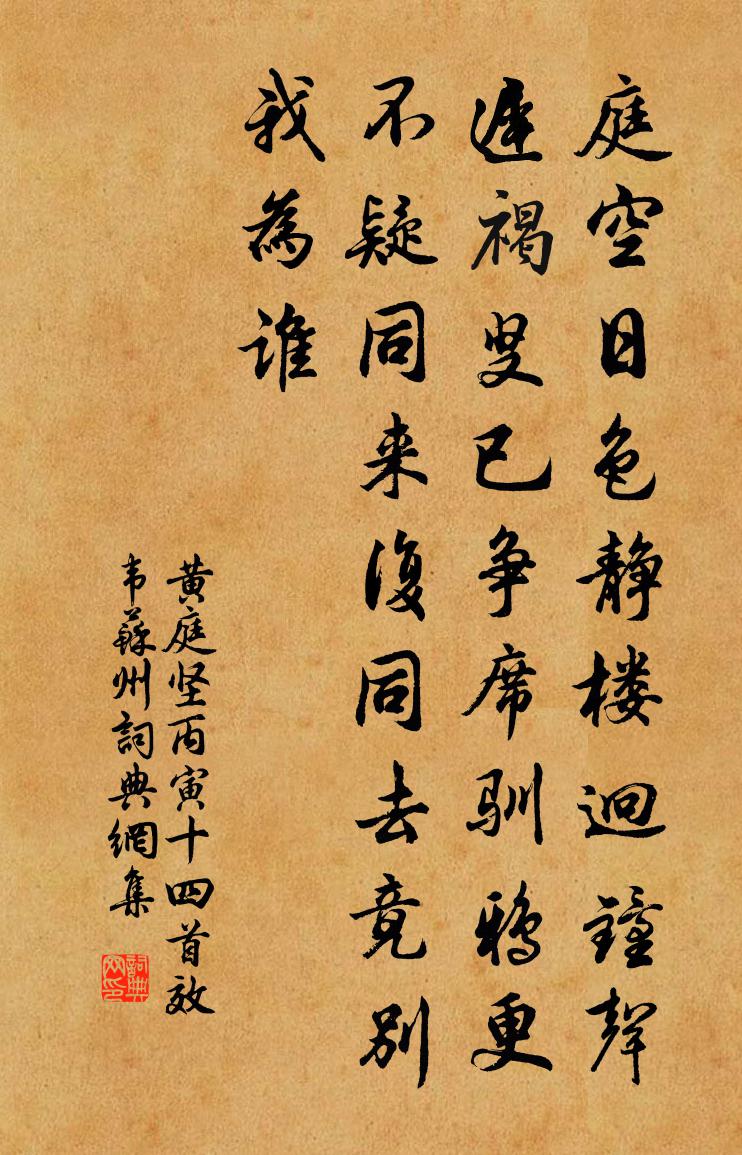 庭空日色静楼迥鐘聲
遲褐叟已争席驯鴉更
不疑同来復同去竟别
我為谁
黄庭坚丙寅十四首效
韦蘇州詞典網集
詞典網印